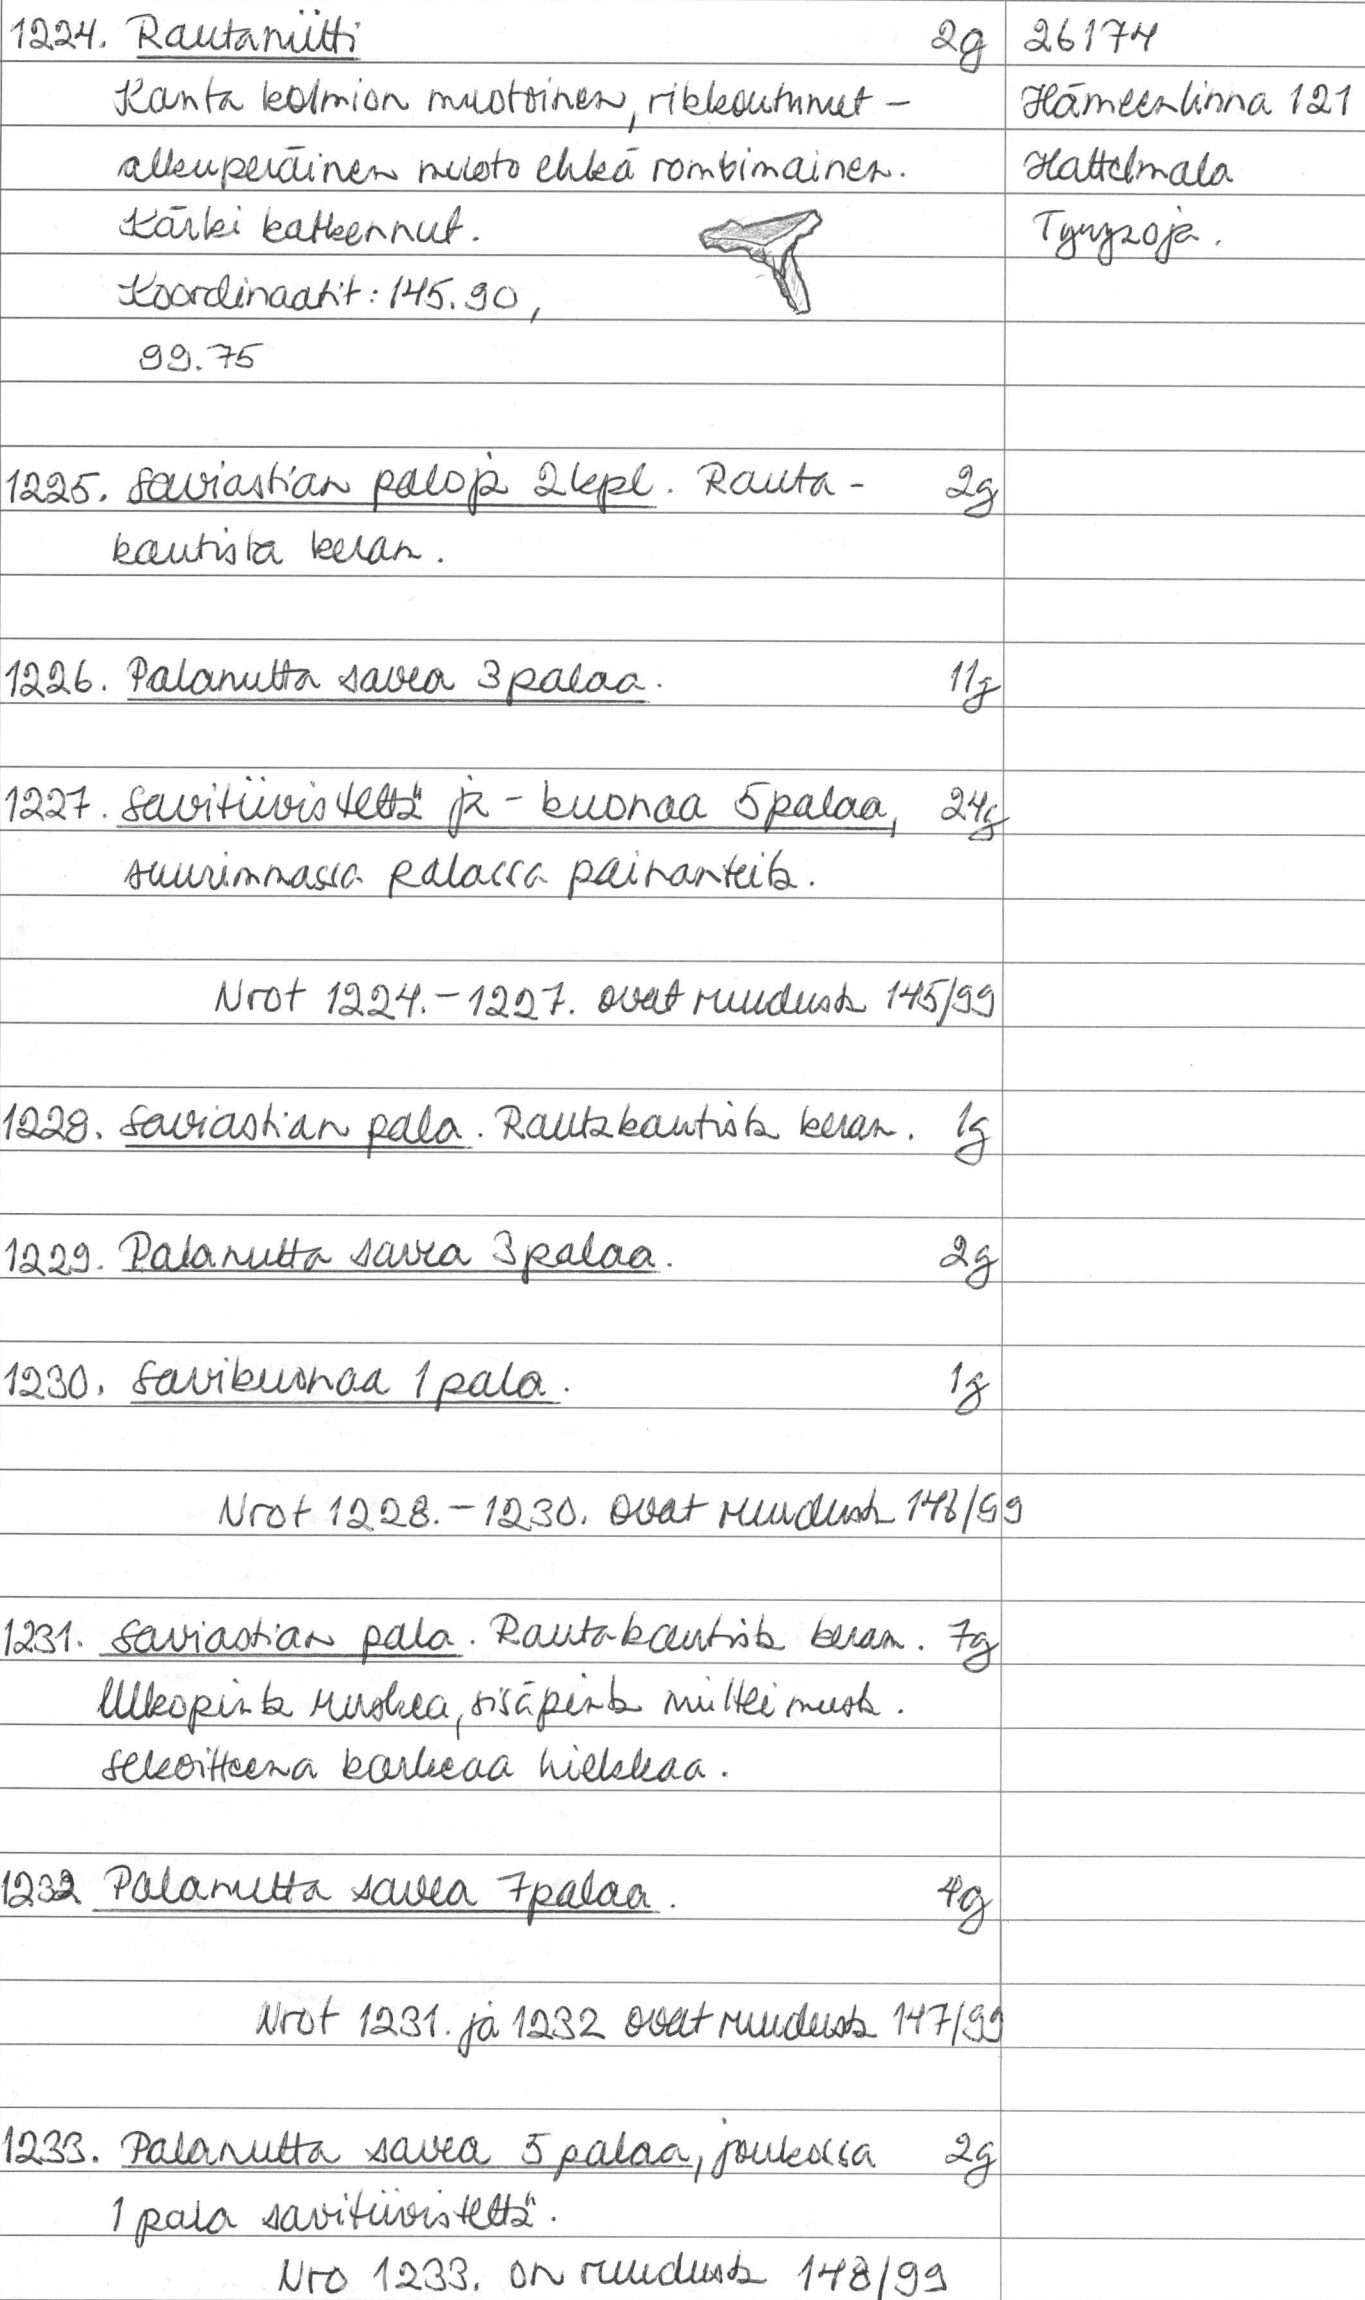 1224. Rautaniitti 2g 26174
Kanta kolmion muotoinen, rikkoutunut - Hämeenlinna 121
alkuperäinen muoto ehkä rombimainen. Hattelmala
Kärki katkennut. Tyrysoja.
Koordinaatit: 145.90,
99.75
1225. Saviastian paloja 2 kpl. Rauta- 2g
kautista keram.
1226. Palanutta savea 3 palaa. 11g
1227. Savitiivistettä ja -kuonaa 5 palaa, 24g
suurimmassa palassa painanteita.
Nrot 1224.-1227. ovat ruudusta 145/99
1228. Saviastian pala. Rautakautista keram. 1g
1229. Palanutta savea 3 palaa. 2g
1230. Savikuonaa 1 pala. 1g
Nrot 1228.-1230. ovat ruudusta /99
1231. Saviastian pala. Rautakautista keram. 7g
Ulkopinta ruskea, sisäpinta miltei musta.
Sekoitteena karkeaa hiekkaa.
1232 Palanutta savea 7 palaa. 4g
Nrot 1231. ja 1232 ovat ruudusta 147/99
1233. Palanutta savea 5 palaa, joukossa 2g
1 pala savitiivistettä.
Nro 1233. on ruudusta 148/99